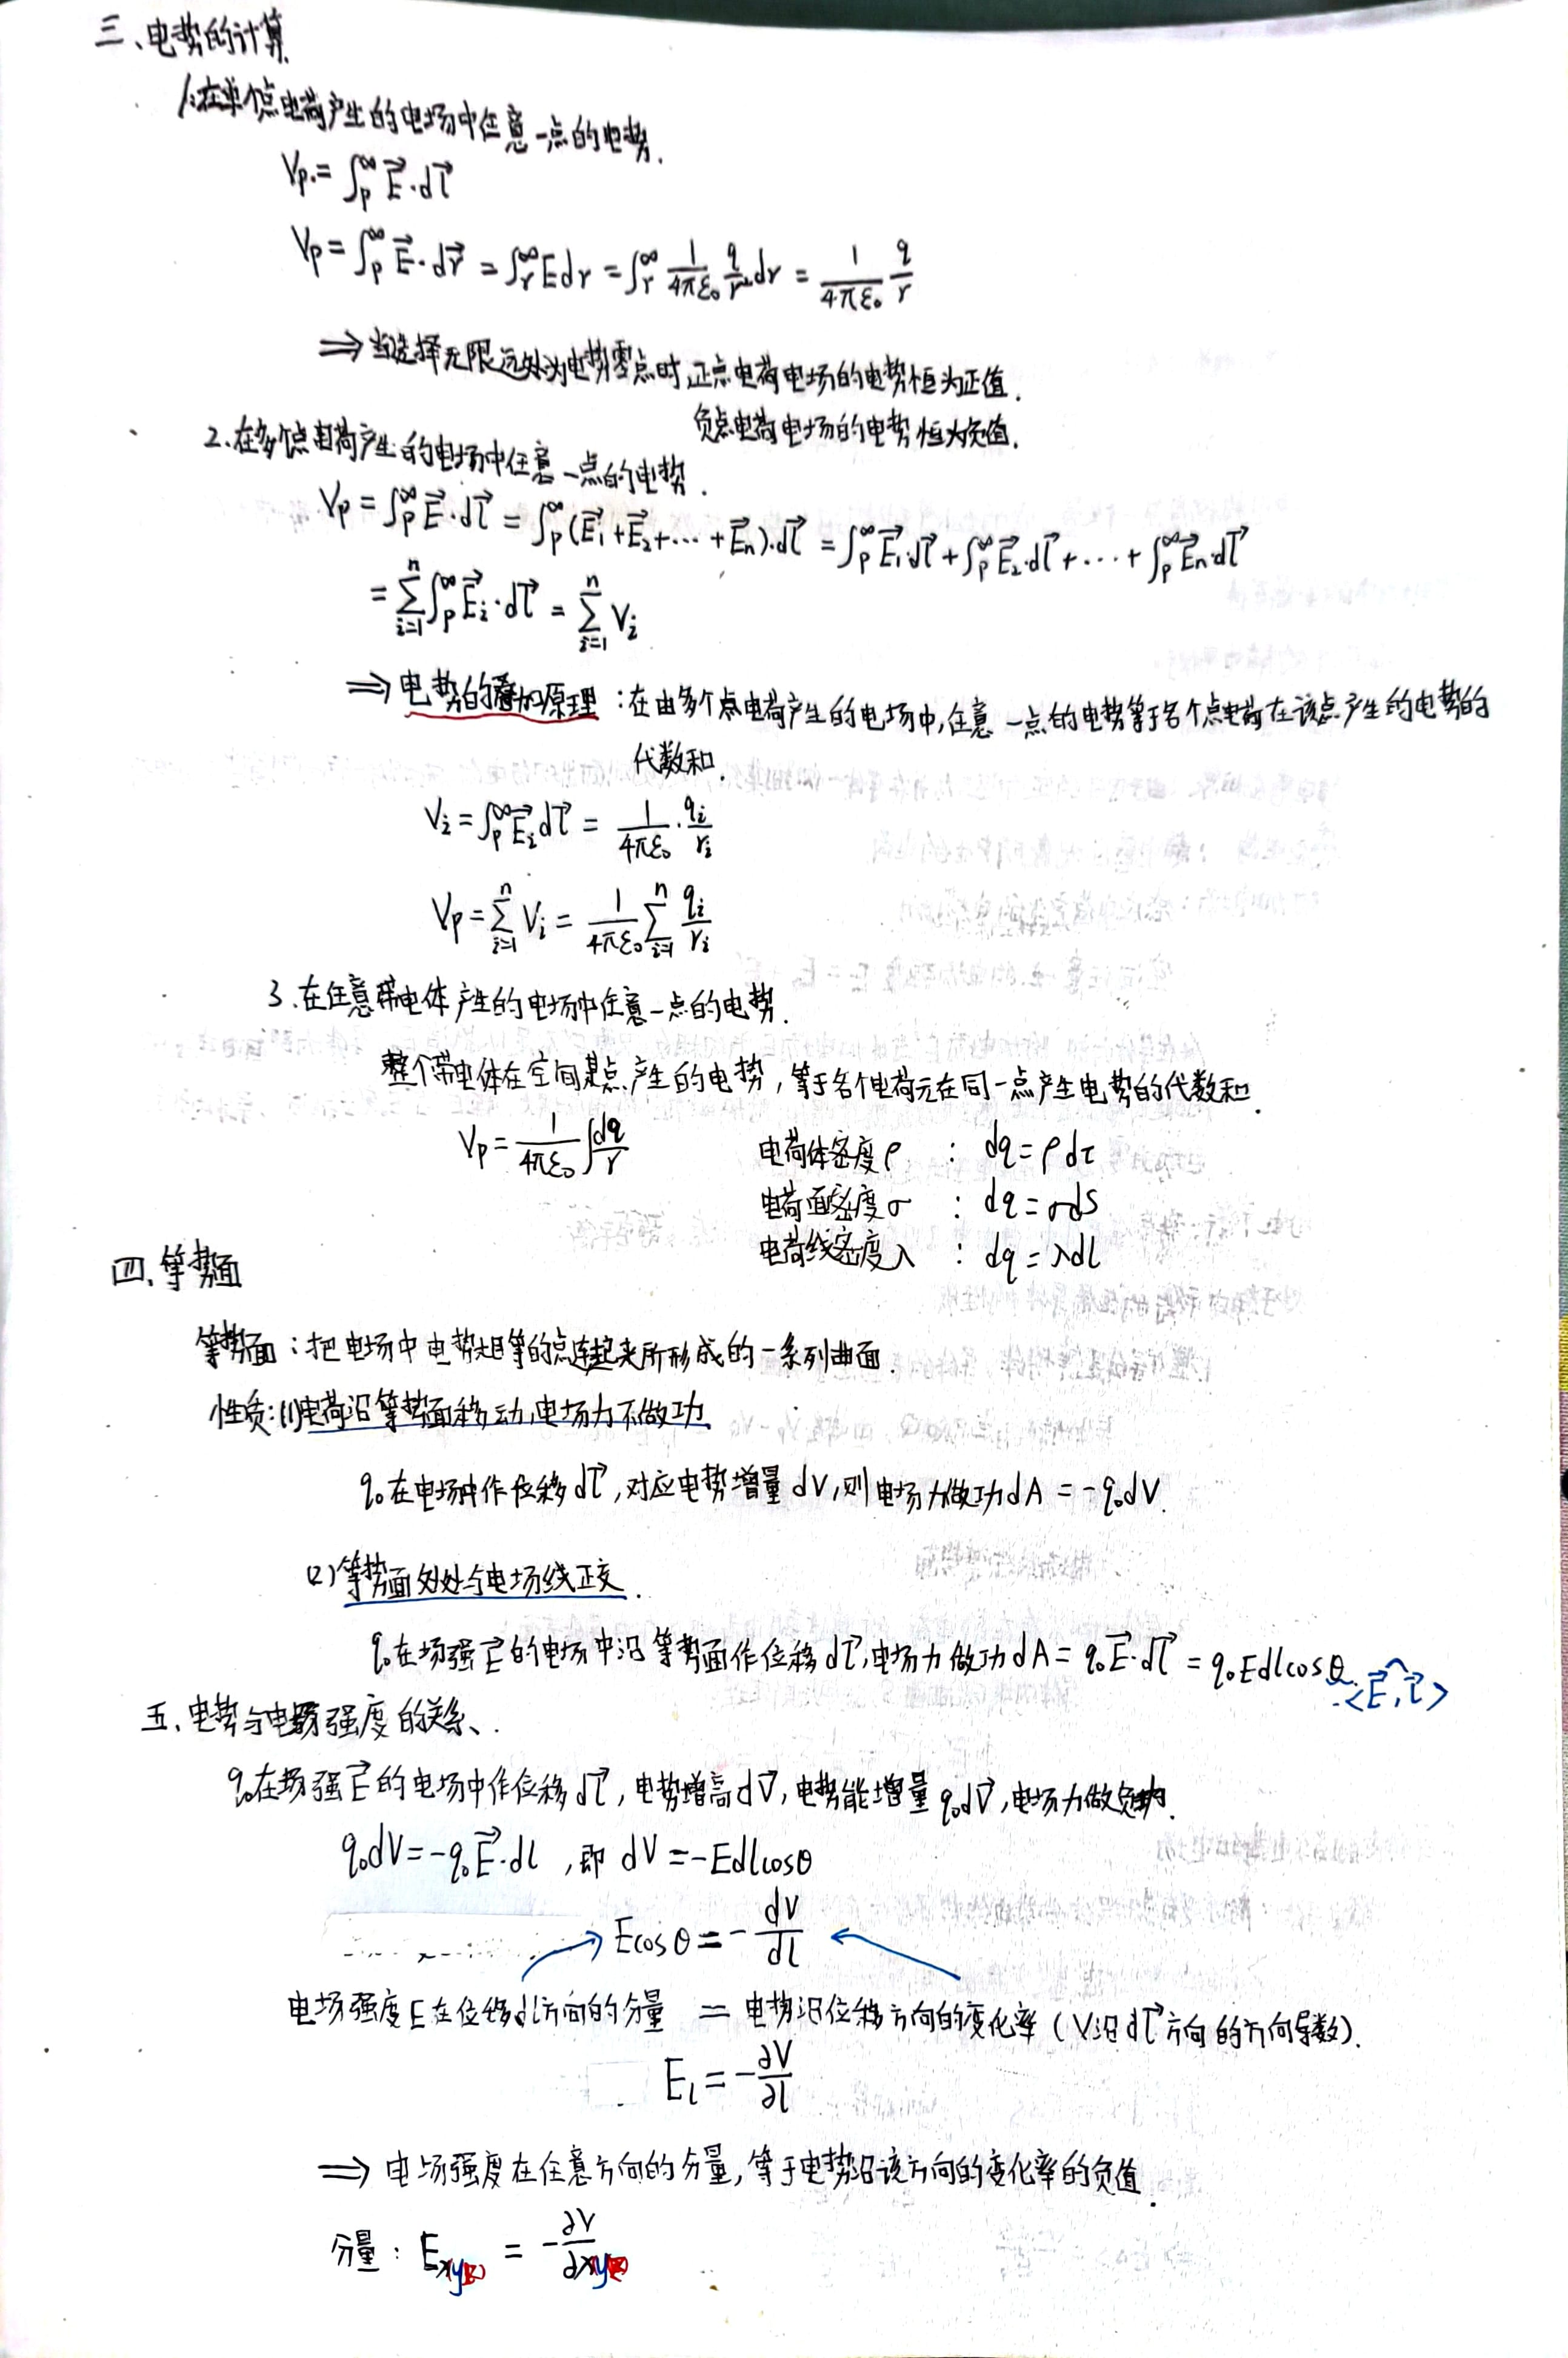 三、电势的计算.
1.在单个点电荷产生的电场中任意一点的电势.
Vp = ∫_p^∞ E⃗·dl⃗
Vp = ∫_p^∞ E⃗·dr⃗ = ∫_r^∞ Edr = ∫_r^∞ 1/(4πε₀) q/r² dr = 1/(4πε₀) q/r
⟹ 当选择无限远处为电势零点时,正点电荷电场的电势恒为正值.
负点电荷电场的电势恒为负值.
2.在多个点电荷产生的电场中任意一点的电势.
Vp = ∫_p^∞ E⃗·dl⃗ = ∫_p^∞ (E⃗₁+E⃗₂+…+E⃗n)·dl⃗ = ∫_p^∞ E⃗₁·dl⃗ + ∫_p^∞ E⃗₂·dl⃗ + … + ∫_p^∞ E⃗n·dl⃗
= Σ_{i=1}^n ∫_p^∞ E⃗i·dl⃗ = Σ_{i=1}^n Vi
⟹ 电势的叠加原理:在由多个点电荷产生的电场中,任意一点的电势等于各个点电荷在该点产生的电势的
代数和.
Vi = ∫_p^∞ E⃗i dl⃗ = 1/(4πε₀)·qi/ri
Vp = Σ_{i=1}^n Vi = 1/(4πε₀) Σ_{i=1}^n qi/ri
3.在任意带电体产生的电场中任意一点的电势.
整个带电体在空间某点产生的电势,等于各个电荷元在同一点产生电势的代数和.
Vp = 1/(4πε₀) ∫ dq/r 电荷体密度ρ : dq = ρdτ
电荷面密度σ : dq = σds
电荷线密度λ : dq = λdl
四、等势面
等势面:把电场中电势相等的点连起来所形成的一系列曲面.
性质:(1)电荷沿等势面移动,电场力不做功.
q₀在电场中作位移dl⃗,对应电势增量dV,则电场力做功dA = -q₀dV.
(2)等势面处处与电场线正交.
q₀在场强E⃗的电场中沿等势面作位移dl⃗,电场力做功dA = q₀E⃗·dl⃗ = q₀Edlcosθ.
<E⃗,l⃗>
五、电势与电场强度的关系、.
q₀在场强E⃗的电场中作位移dl⃗,电势增高dV,电势能增量q₀dV,电场力做负功.
q₀dV = -q₀E⃗·dl ,即 dV = -Edlcosθ
Ecosθ = -dV/dl
电场强度E在位移dl方向的分量 = 电势沿位移方向的变化率(V沿dl⃗方向的方向导数).
E_l = -∂V/∂l
⟹ 电场强度在任意方向的分量,等于电势沿该方向的变化率的负值.
分量: Ex(y)(z) = -∂V/∂x(y)(z)